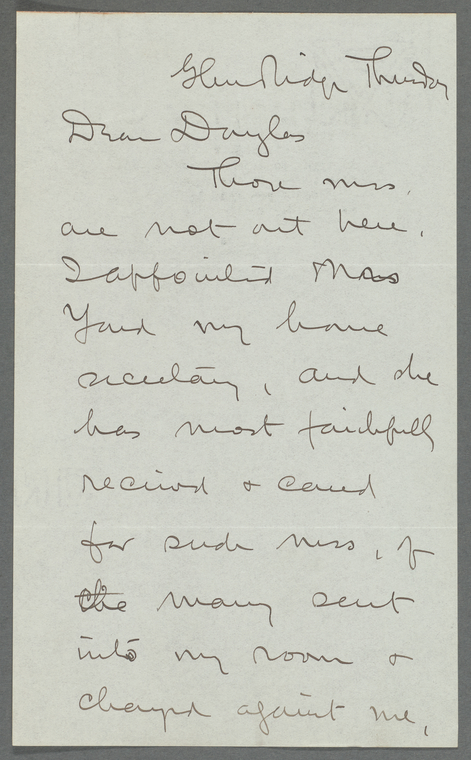 Glen Ridge Thursday
Dear Douglas
Those mss.
are not out here.
I appointed Miss
Yard my home
secretary, and she
has most faithfully
received & cared
for such mss, of
the many sent
into my room &
charged against me,